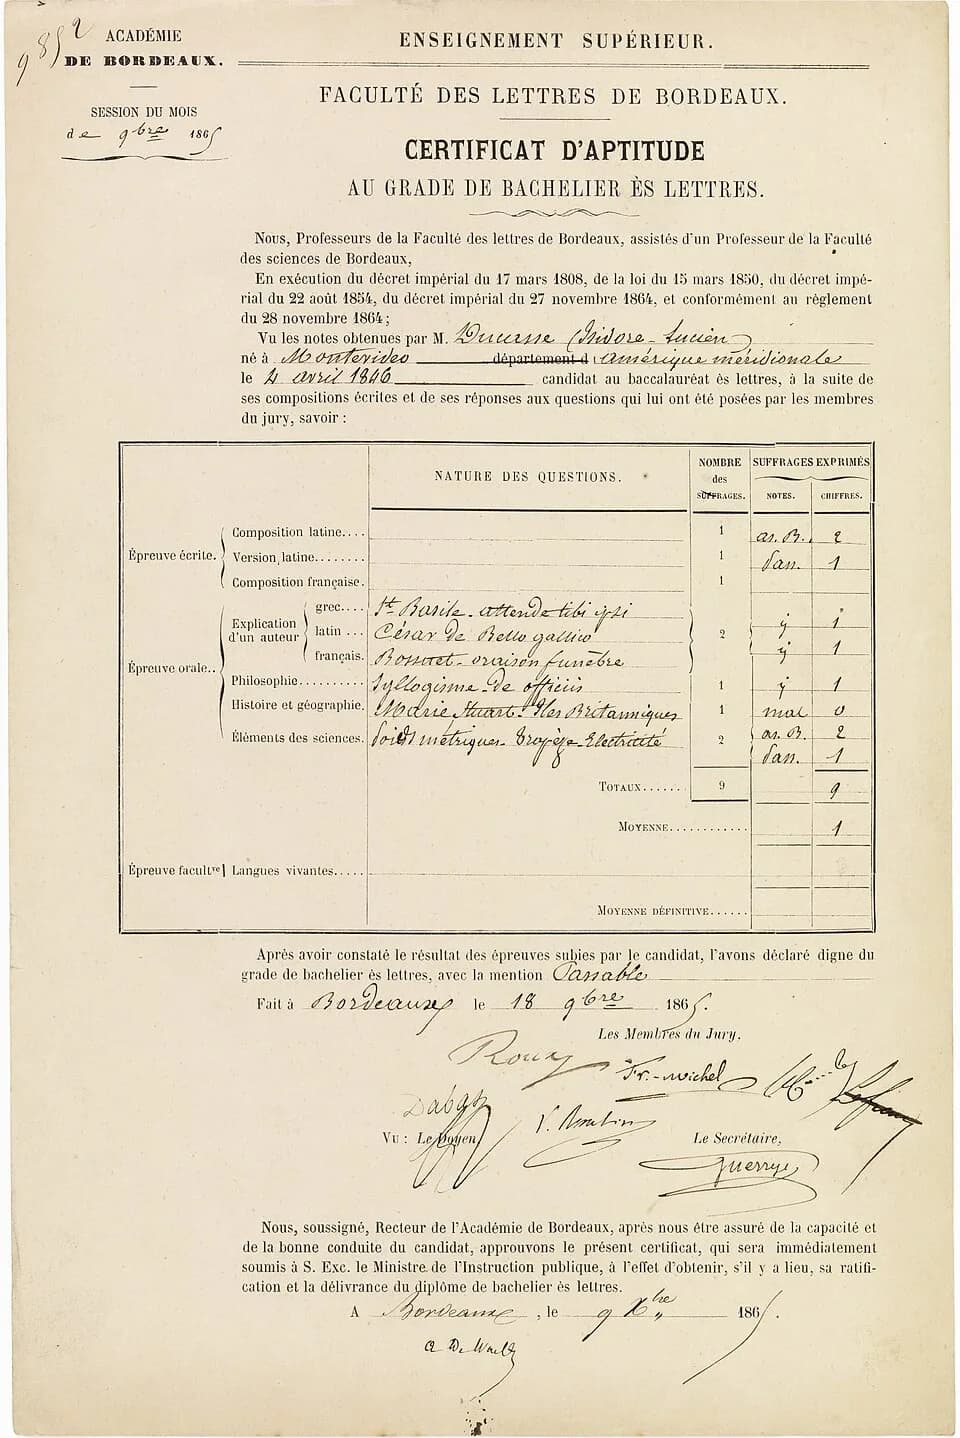 9852
ACADÉMIE
DE BORDEAUX.
SESSION DU MOIS
de 9bre 1865
ENSEIGNEMENT SUPÉRIEUR.
FACULTÉ DES LETTRES DE BORDEAUX.
CERTIFICAT D'APTITUDE
AU GRADE DE BACHELIER ÈS LETTRES.
Nous, Professeurs de la Faculté des lettres de Bordeaux, assistés d'un Professeur de la Faculté
des sciences de Bordeaux,
En exécution du décret impérial du 17 mars 1808, de la loi du 15 mars 1850, du décret impé-
rial du 22 août 1854, du décret impérial du 27 novembre 1864, et conformément au règlement
du 28 novembre 1864;
Vu les notes obtenues par M. Ducasse (Isidore-Lucien)
né à Montevideo département d Amérique méridionale
le 4 avril 1846 candidat au baccalauréat ès lettres, à la suite de
ses compositions écrites et de ses réponses aux questions qui lui ont été posées par les membres
du jury, savoir :
NATURE DES QUESTIONS.
NOMBRE
des
SUFFRAGES.
SUFFRAGES EXPRIMÉS
NOTES. CHIFFRES.
Épreuve écrite.
Composition latine.... 1 as. B. 2
Version latine........ 1 Pas. 1
Composition française. 1
Épreuve orale..
Explication
d'un auteur
grec.... St Basile - attende tibi ipsi ij 1
latin ... César de Bello gallico 2
français. Bossuet - oraison funèbre ij 1
Philosophie.......... Syllogisme - de officiis 1 ij 1
Histoire et géographie. Marie Stuart - Iles Britanniques 1 mal 0
Éléments des sciences. Poids métriques - Trapèze - Electricité 2 as. B. 2
Pas. 1
TOTAUX...... 9 9
MOYENNE............ 1
Épreuve facultve Langues vivantes.....
MOYENNE DÉFINITIVE......
Après avoir constaté le résultat des épreuves subies par le candidat, l'avons déclaré digne du
grade de bachelier ès lettres, avec la mention Passable
Fait à Bordeaux le 18 9bre 1865.
Les Membres du Jury.
Roux
Fr.-Michel
Dabas
Vu : Le Doyen,
Le Secrétaire,
Nous, soussigné, Recteur de l'Académie de Bordeaux, après nous être assuré de la capacité et
de la bonne conduite du candidat, approuvons le présent certificat, qui sera immédiatement
soumis à S. Exc. le Ministre de l'Instruction publique, à l'effet d'obtenir, s'il y a lieu, sa ratifi-
cation et la délivrance du diplôme de bachelier ès lettres.
A Bordeaux, le 9 Xbre 1865.